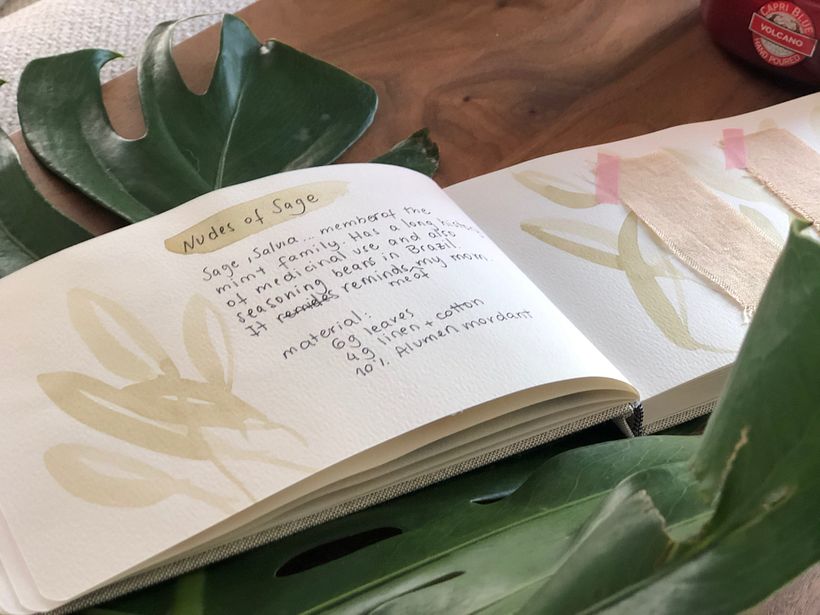 Nudes of Sage
Sage, Salva... member of the
mint family. Has a long history
of medicinal use and also
seasoning beans in Brazil.
It reminds my mom.
meat
material:
6g leaves
4g linen + cotton
10% Alumen mordant
CAPRI BLUE
VOLCANO
HAND POURED